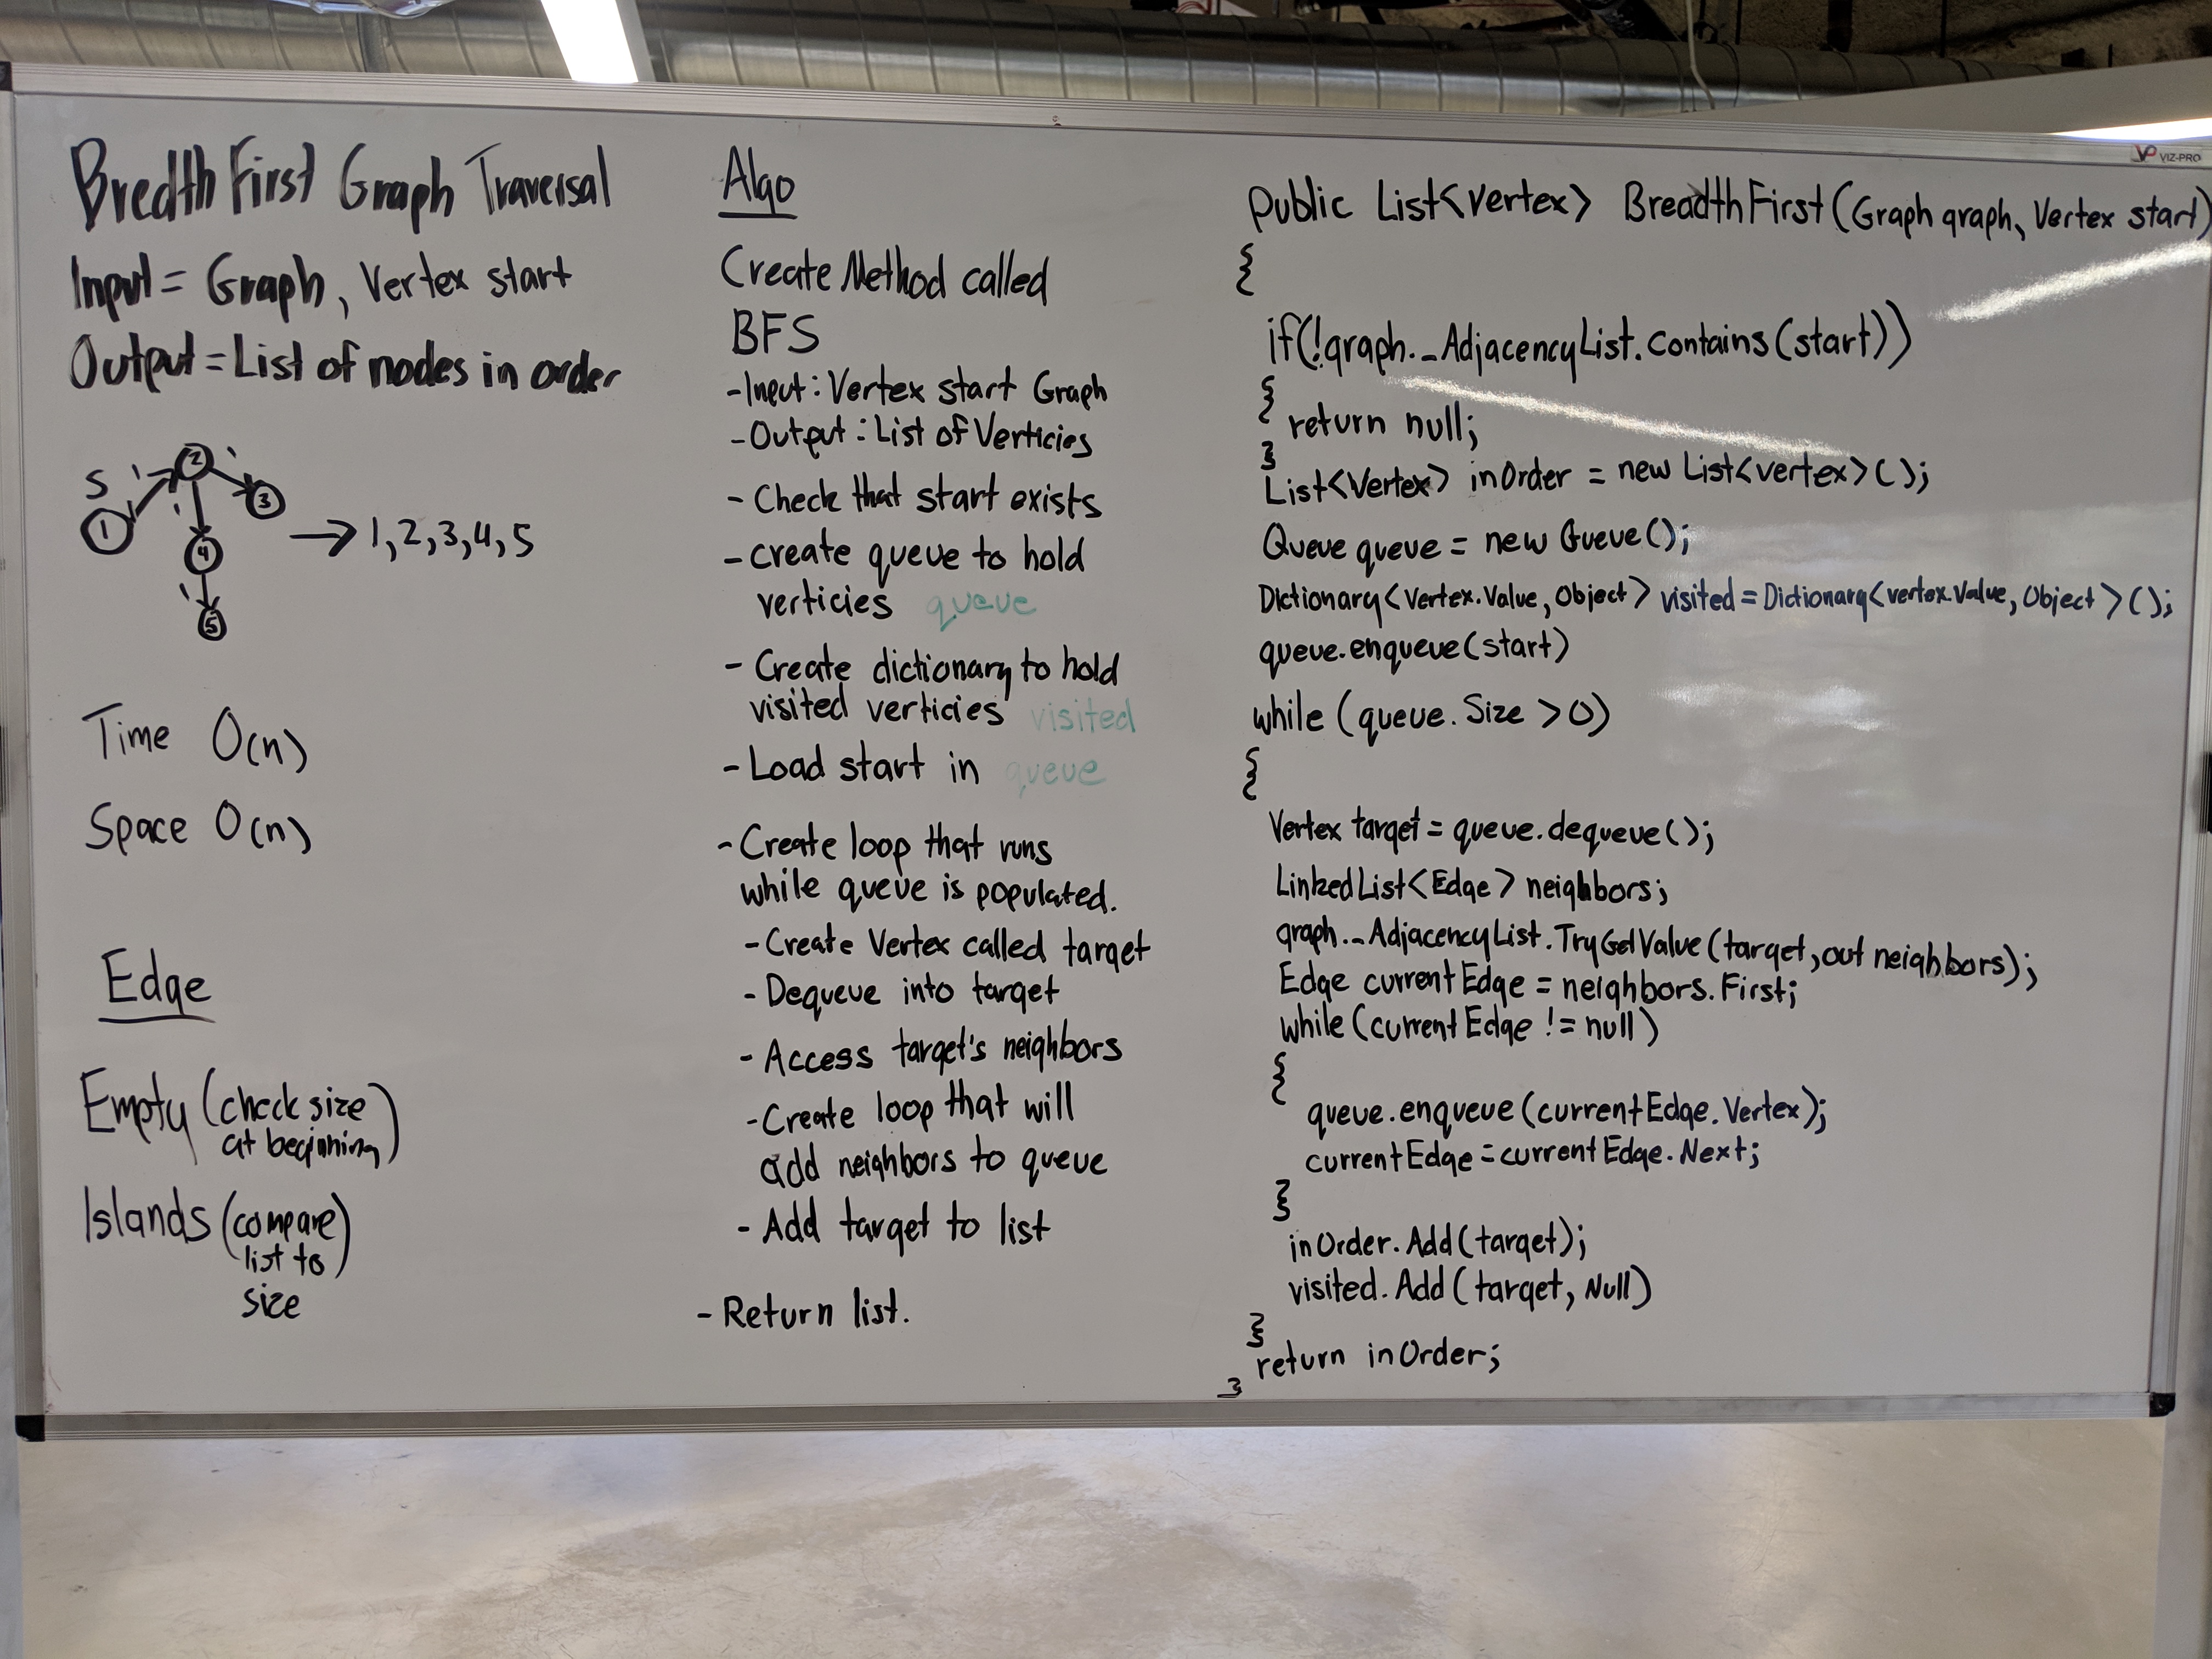 Bredth First Graph Traversal
Input = Graph, Vertex start
Output = List of nodes in order
S
1
2
3
4
5
→ 1,2,3,4,5
Time O(n)
Space O(n)
Edge
Empty (check size
at beginning)
Islands (compare
list to
size
Algo
Create Method called
BFS
-Input: Vertex start Graph
-Output: List of Verticies
- Check that start exists
- create queue to hold
verticies queue
- Create dictionary to hold
visited verticies visited
- Load start in queue
- Create loop that runs
while queue is populated.
- Create Vertex called target
- Dequeue into target
- Access target's neighbors
- Create loop that will
add neighbors to queue
- Add target to list
- Return list.
VP VIZ-PRO
public List<vertex> BreadthFirst(Graph graph, Vertex start)
{
if(!graph._AdjacencyList.contains(start))
{
return null;
}
List<Vertex> inOrder = new List<vertex>();
Queue queue = new Queue();
Dictionary<Vertex.Value, Object> visited = Dictionary<vertex.Value, Object>();
queue.enqueue(start)
while (queue.Size > 0)
{
Vertex target = queue.dequeue();
LinkedList<Edge> neighbors;
graph._AdjacencyList.TryGetValue(target, out neighbors);
Edge currentEdge = neighbors.First;
while (currentEdge != null)
{
queue.enqueue(currentEdge.Vertex);
currentEdge = currentEdge.Next;
}
inOrder.Add(target);
visited.Add(target, Null)
}
return inOrder;
}